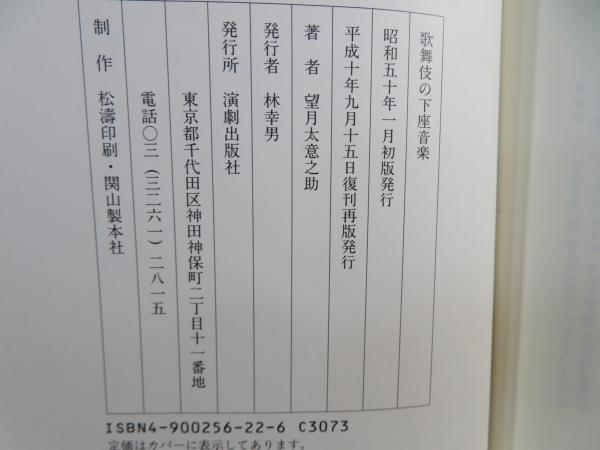 歌舞伎の下座音楽
昭和五十年一月初版発行
平成十年九月十五日復刊再版発行
著者 望月太意之助
発行者 林幸男
発行所 演劇出版社
東京都千代田区神田神保町二丁目十一番地
電話〇三(三二六一)二八一五
制作 松濤印刷・関山製本社
ISBN4-900256-22-6 C3073
定価はカバーに表示してあります。